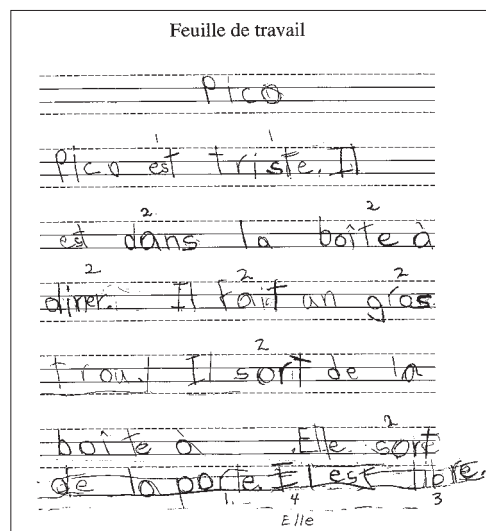 Feuille de travail
Pico
1 1
Pico est triste. Il
2 2
est dans la boîte à
2 2 2
dîner. Il fait un gros
2
trou. Il sort de la
2
boîte à . Elle sort
de la porte. El est libre.
1. 4 3
Elle